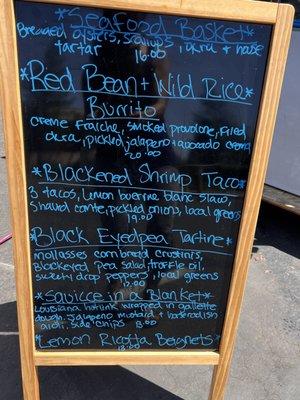 *Seafood Basket*
Breaded oysters, scallops, okra + house
tartar
16.00
*Red Bean + Wild Rice*
Burrito
creme fraiche, smoked provolone, fried
okra, pickled jalapeno + avocado crema
20.00
*Blackened Shrimp Taco*
3 tacos, lemon buerre blanc slaw,
shaved comte, pickled onions, local greens
19.00
*Black Eyedpea Tartine*
mollasses cornbread crustinis,
Blackeyed pea salad, truffle oil,
sweety drop peppers, local greens
12.00
*Saucice in a Blanket*
Louisiana hotlink wrapped in gallette
dough, jalapeno mustard + horseradish
aioli, side chips 8.00
*Lemon Ricotta Beignets*
13.00